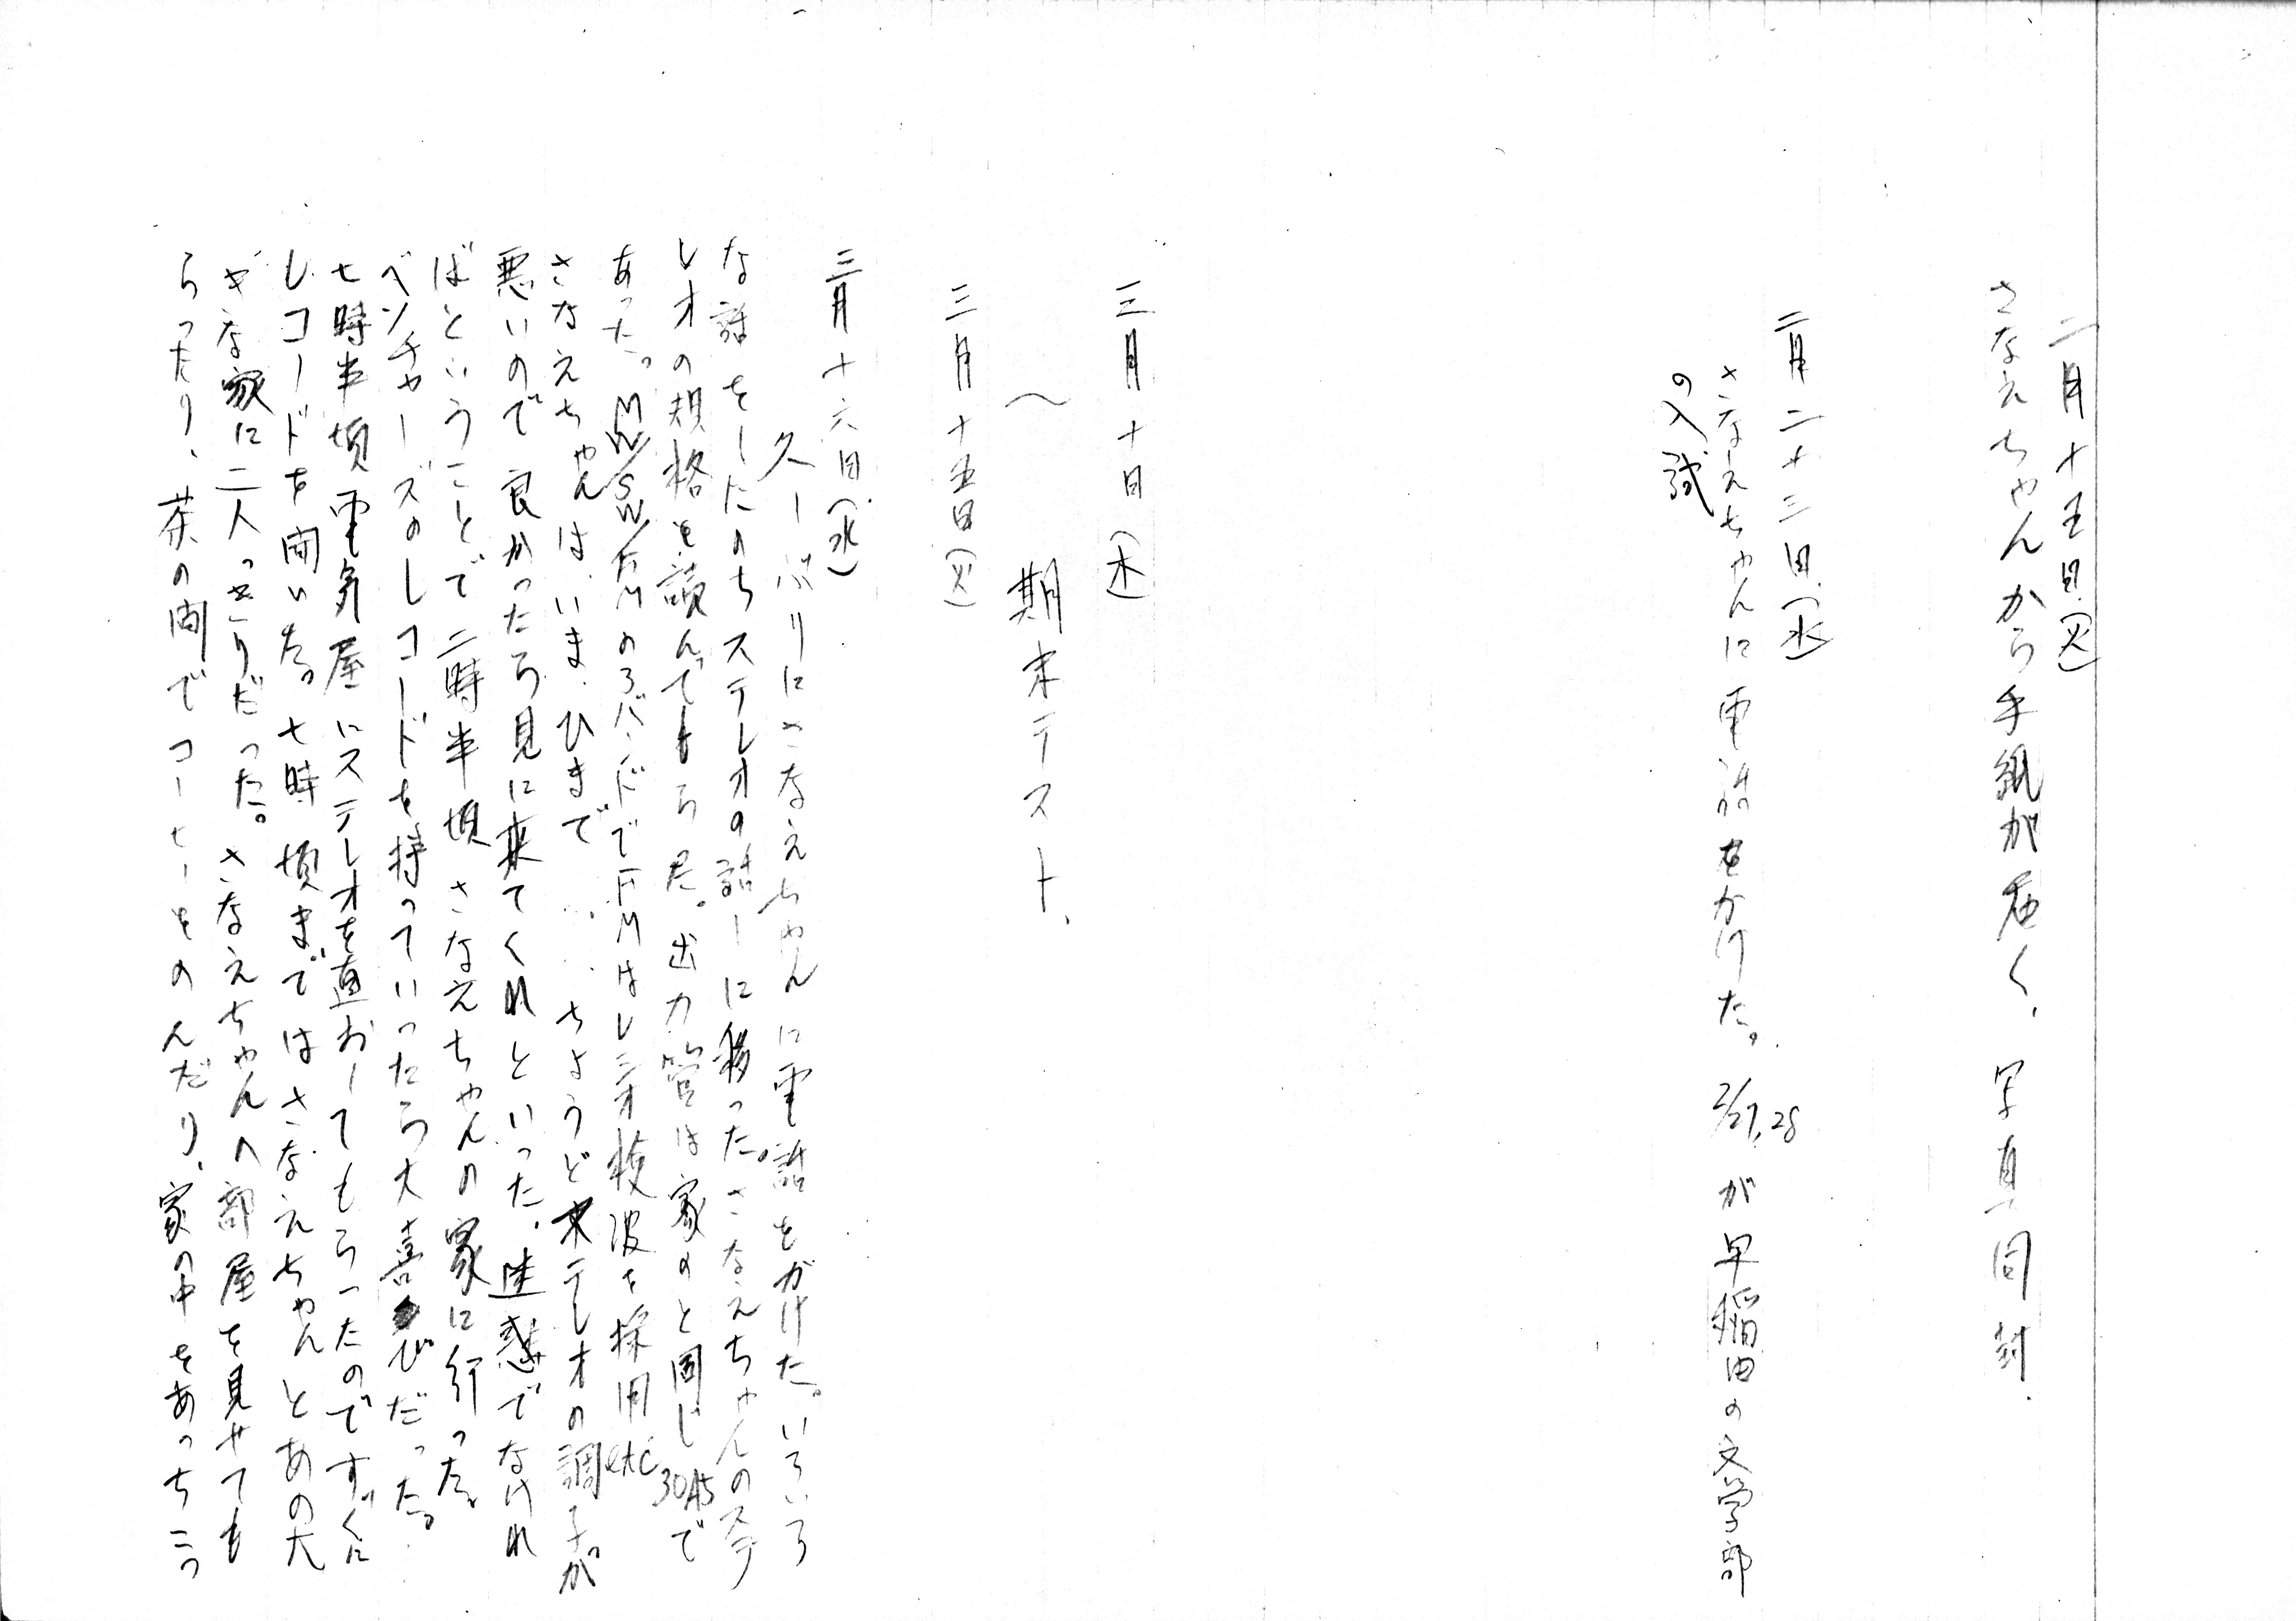 二月十五日(火)
さなえちゃんから手紙が届く、写真同封.
二月二十三日(水)
さなえちゃんに電話をかけた。2/27,28が早稲田の文学部
の入試
三月十日(木)
〜 期末テスト、
三月十五日(火)
三月十六日(水)
久しぶりにさなえちゃんに電話をかけた。いろいろ
な話をしたのちステレオの話しに移った。さなえちゃんのステ
レオの規格を読んでもらう。出力管は家のと同じ30A5で
あった。MW/SW/FMの3バンドでFMはレシオ検波を採用etc
さなえちゃんは、いま、ひまで・・・ちょうどステレオの調子が
悪いので良かったら見に来てくれといった、迷惑でなけれ
ばということで二時半頃さなえちゃんの家に行った。
ベンチャーズのレコードを持っていったら大喜びだった。
七時半頃電気屋にステレオを直おしてもらったのですぐに
レコードを聞いた。七時頃まではさなえちゃんとあの大
きな家に二人っきりだった。さなえちゃんの部屋を見せても
らったり、茶の間でコーヒーをのんだり、家の中をあっちこっ